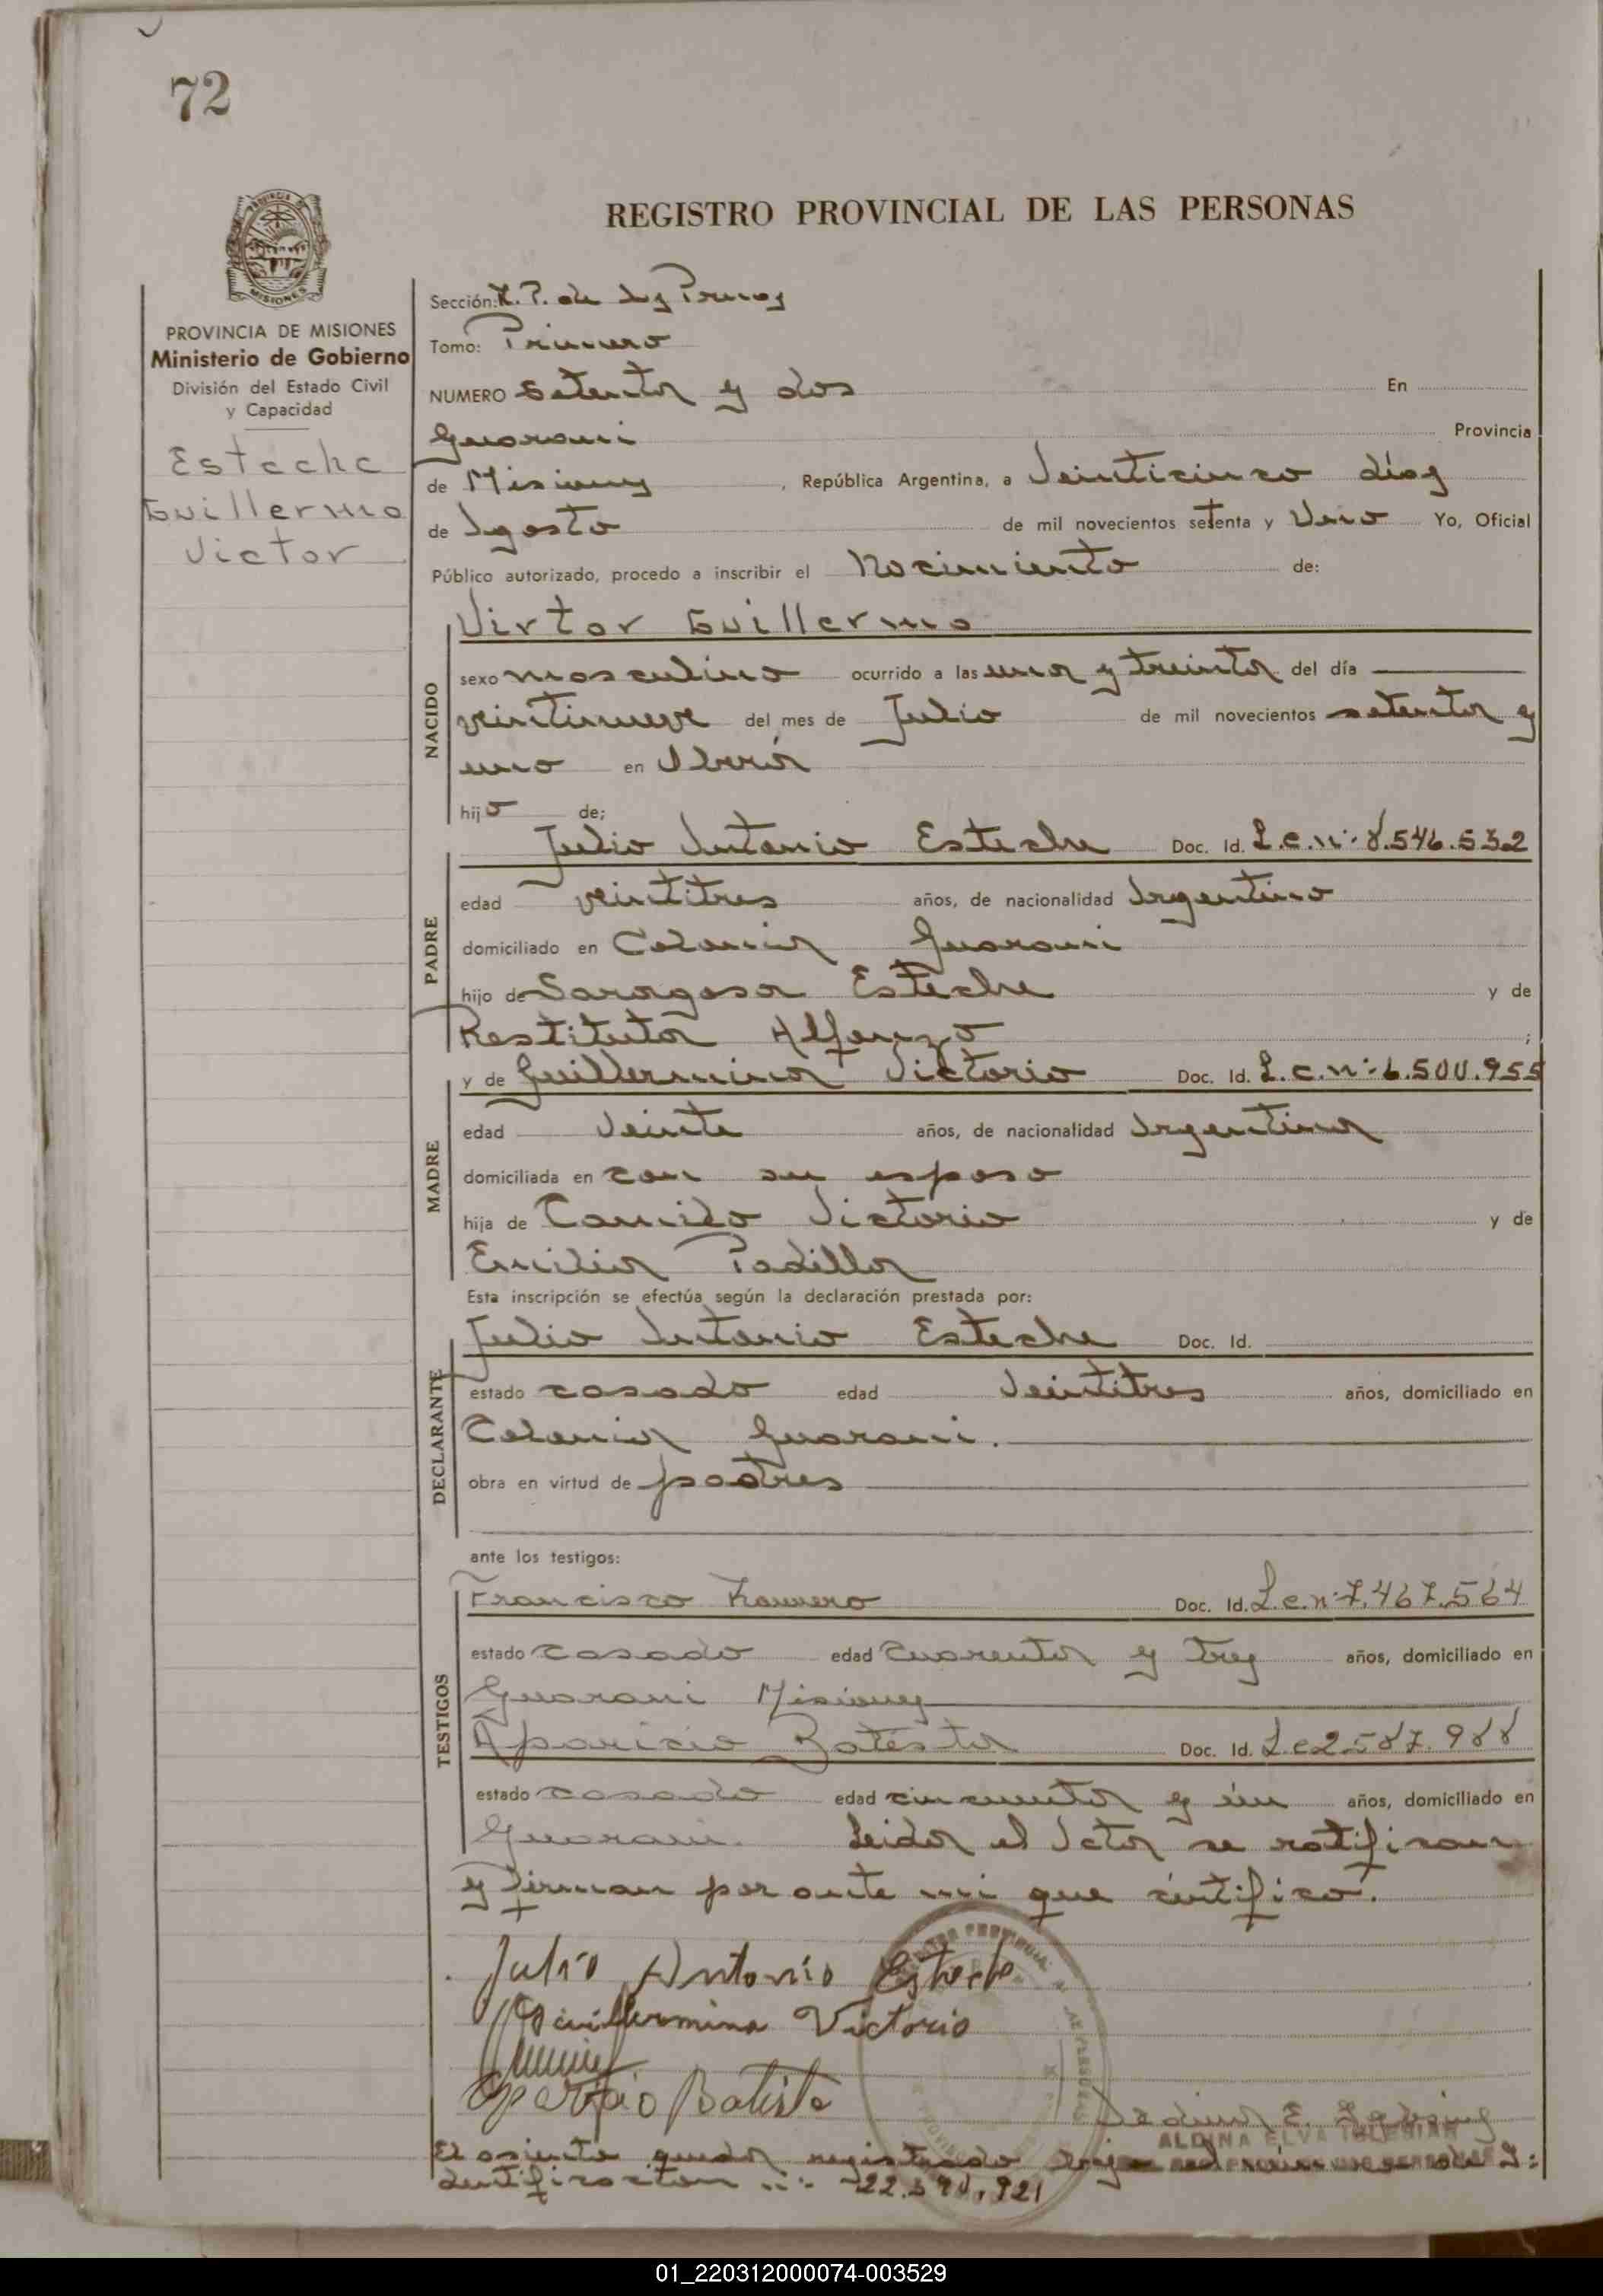 72
REGISTRO PROVINCIAL DE LAS PERSONAS
PROVINCIA DE MISIONES
Ministerio de Gobierno
División del Estado Civil
y Capacidad
Esteche
Guillermo
Victor
Sección: R. P. de las
Tomo: Primero
NUMERO setenta y dos En
Guarani Provincia
de Misiones, República Argentina, a Veinticinco días
de Agosto de mil novecientos setenta y Uno Yo, Oficial
Público autorizado, procedo a inscribir el Nacimiento de:
Virtor Guillermo
NACIDO
sexo masculino ocurrido a las una y treinta del día
veintinueve del mes de Julio de mil novecientos setenta y
uno en
hijo de;
PADRE
Julio Antonio Esteche Doc. Id. L.e.nº: 8.546.532
edad veintitres años, de nacionalidad Argentino
domiciliado en Colonia Guarani
hijo de Saragosa Esteche y de
Restituta Alfonzo;
MADRE
y de Guillermina Victorio Doc. Id. L.c.nº: 6.500.955
edad Veinte años, de nacionalidad Argentina
domiciliada en con su esposo
hija de Camilo Victorio y de
Emilia Padilla
Esta inscripción se efectúa según la declaración prestada por:
DECLARANTE
Julio Antonio Esteche Doc. Id.
estado casado edad Veintitres años, domiciliado en
Colonia Guarani.
obra en virtud de padres
ante los testigos:
TESTIGOS
Francisco Romero Doc. Id. L.e.nº 7.467.564
estado casado edad cuarenta y tres años, domiciliado en
Guarani Misiones
Aparicio Batista Doc. Id. L.e 2.587.988
estado casado edad cincuenta y un años, domiciliado en
Guarani. Leida el Acta se ratifican
y firman por ante mi que certifico.
Julio Antonio Esteche
Guillermina Victorio
Aparicio Batista
ALDINA ELVA IGLESIAS
El asiento queda registrado
22.590.921
01_220312000074-003529